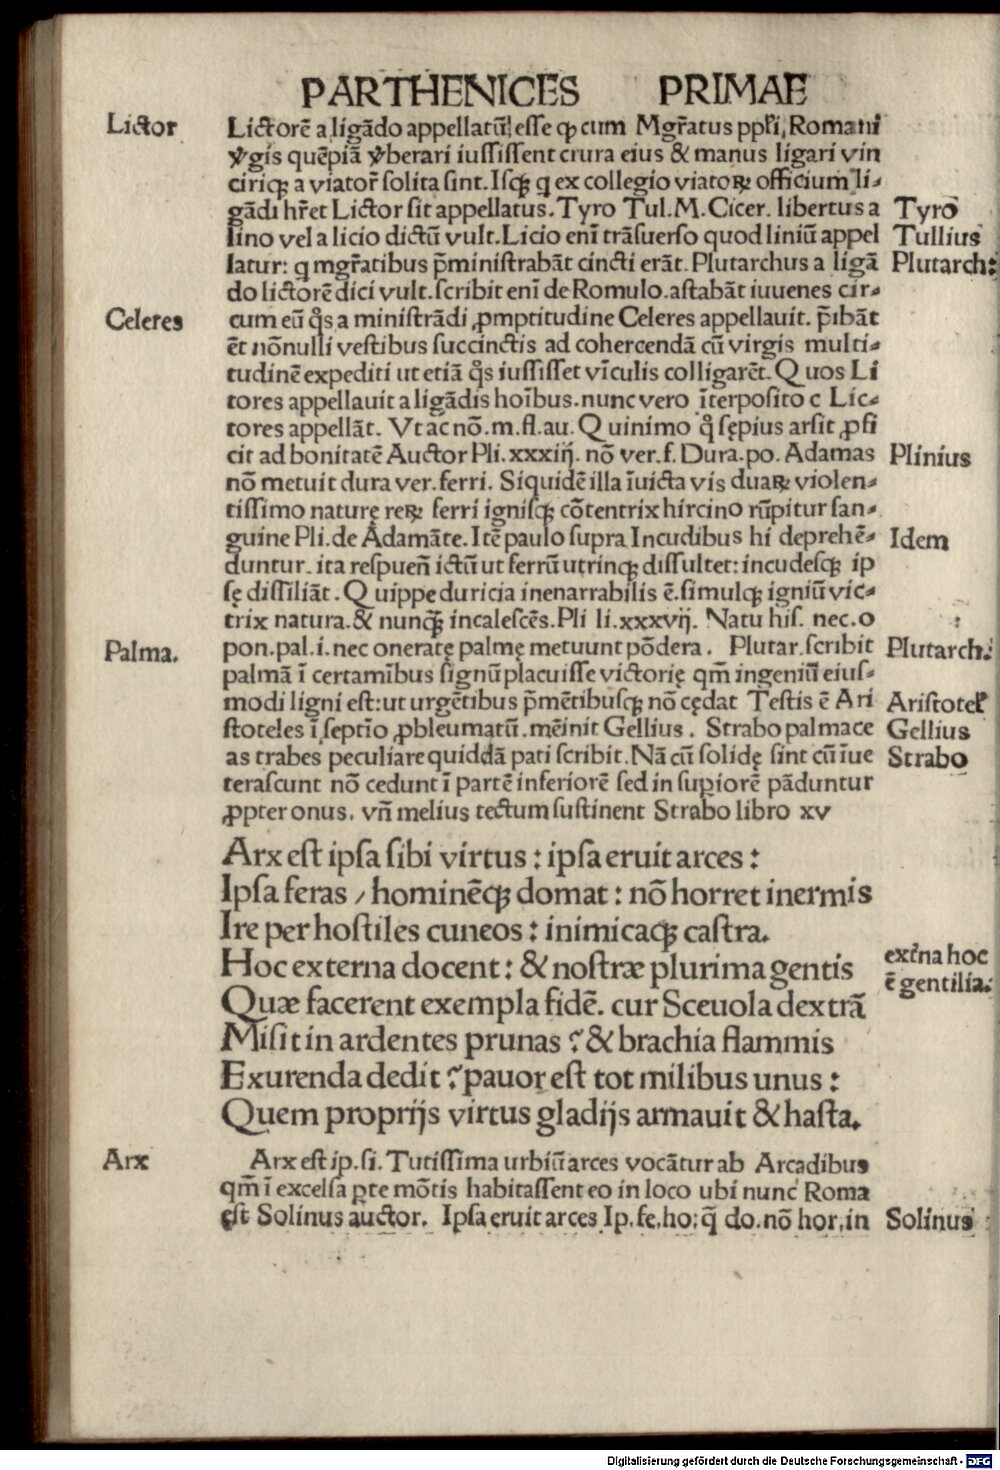 PARTHENICES PRIMAE
Lictor
Lictorē a ligādo appellatū! esse ꝙ cum Mgr̄atus ppli, Romani
ꝟgis quēpiā ꝟberari iussissent crura eius & manus ligari vin
ciriqꝫ a viator̄ solita sint. Isqꝫ q ex collegio viatoꝝ officium li-
gādi hr̄et Lictor sit appellatus. Tyro Tul. M. Cicer. libertus a
Tyro
lino vel a licio dictū vult. Licio enī trāsuerso quod liniū appel
Tullius
latur: q mgr̄atibus p̄ministrabāt cincti erāt. Plutarchus a ligā
Plutarch:
do lictorē dici vult. scribit enī de Romulo. astabāt iuuenes cir-
Celeres
cum eū qͦs a ministrādi ꝓmptitudine Celeres appellauit. p̄ibāt
ēt nōnulli vestibus succinctis ad cohercendā cū virgis multi-
tudinē expediti ut etiā qͦs iussisset vīculis colligarēt. Quos Li
tores appellauit a ligādis hoībus. nunc vero īterposito c Lic-
tores appellāt. Vt ac nō. m. fl. au. Quinimo qͦ sępius arsit ꝓfi
cit ad bonitatē Auctor Pli. xxxiij. nō ver. f. Dura. po. Adamas
Plinius
nō metuit dura ver. ferri. Siquidē illa īuicta vis duaꝝ violen-
tissimo naturę reꝝ ferri ignisqꝫ cōtentrix hircino rūpitur san-
guine Pli. de Adamāte. Itē paulo supra Incudibus hi deprehē-
Idem
duntur. ita respueñ ictū ut ferrū utrinqꝫ dissultet: incudesqꝫ ip
sę dissiliāt. Quippe duricia inenarrabilis ē. simulqꝫ igniū vic-
trix natura. & nunqꝫ̄ incalescēs. Pli li. xxxvij. Natu his. nec. o
Palma.
pon. pal. i. nec oneratę palmę metuunt pōdera. Plutar. scribit
Plutarch:
palmā ī certamībus signū placuisse victorię qm̄ ingeniū eius-
modi ligni est: ut urgētibus p̄mētibusqꝫ nō cędat Testis ē Ari
Aristotel̄
stoteles ī septīo ꝓbleumatū. mēinit Gellius. Strabo palmace
Gellius
as trabes peculiare quiddā pati scribit. Nā cū solidę sint cū īue
Strabo
terascunt nō cedunt ī partē inferiorē sed in supiorē pāduntur
ꝓpter onus. vñ melius tectum sustinent Strabo libro xv
Arx est ipsa sibi virtus: ipsa eruit arces:
Ipsa feras / hominēqꝫ domat: nō horret inermis
Ire per hostiles cuneos: inimicaqꝫ castra.
Hoc externa docent: & nostræ plurima gentis
ext̄na hoc
ē gentilia:
Quæ facerent exempla fidē. cur Sceuola dextrā
Misit in ardentes prunas ? & brachia flammis
Exurenda dedit ? pauor est tot milibus unus:
Quem proprijs virtus gladijs armauit & hasta.
Arx
Arx est ip. si. Tutissima urbiū arces vocātur ab Arcadibus
qm̄ ī excelsa ꝑte mōtis habitassent eo in loco ubi nunc Roma
est Solinus auctor. Ipsa eruit arces Ip. fe. ho: q̄ do. nō hor. in
Solinus
Digitalisierung gefördert durch die Deutsche Forschungsgemeinschaft - DFG